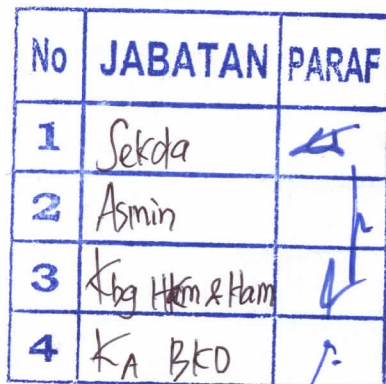 No JABATAN PARAF
1 Sekda
2 Asmin
3 Kbg Hkm & Ham
4 KA BKD